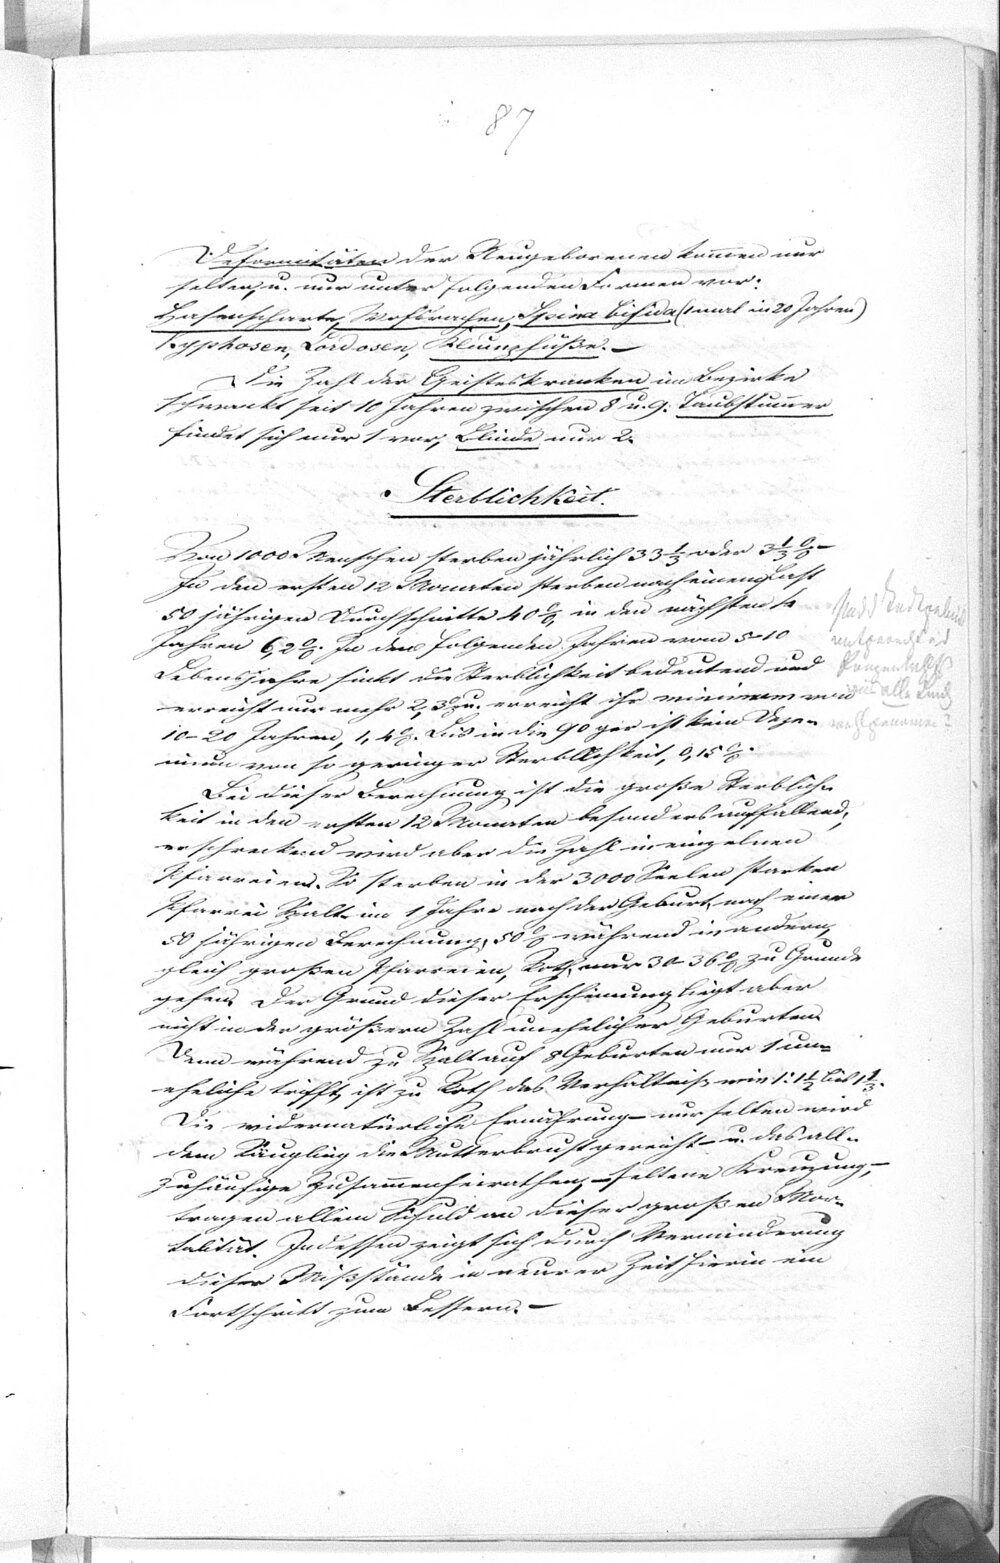 87
Deformitäten der Neugeborenen kommen nur
selten, u. nur unter folgenden Formen vor:
Hasenscharte, Wolfsrachen, Spina bifida (1 mal in 20 Jahren)
Kyphosen, Lordosen, Klumpfüße. –
Die Zahl der Geisteskranken im Bezirke
schwankt seit 10 Jahren zwischen 8 u. 9. Taubstummer
findet sich nur 1 vor, Blinde nur 2.
Sterblichkeit.
Von 1000 Menschen sterben jährlich 33 1/3 oder 3 1/3 % –
In den ersten 12 Monaten sterben nach einem fast
50 jährigen Durchschnitte 40 %, in den nächsten 4
Jahren 6,2 %. In den folgenden Jahren vom 5–10
Lebensjahre sinkt die Sterblichkeit bedeutend und
erreicht nur mehr 2,3 % u. erreicht ihr minimum von
10–20 Jahren, 1,4 %. Bis in die 90ger ist kein Dezen-
nium von so geringer Sterblichkeit, 0,15 %.
Bei dieser Berechnung ist die große Sterblich-
keit in den ersten 12 Monaten besonders auffallend,
erschreckend wird aber die Zahl in einzelnen
Pfarreien. So sterben in der 3000 Seelen starken
Pfarrei Spalt im 1 Jahre nach der Geburt, nach einer
50 jährigen Berechnung, 50 % während in andern,
gleich großen Pfarreien, Roth, nur 30–36 % zu Grunde
gehen. Der Grund dieser Erscheinung liegt aber
nicht in der größern Zahl unehelicher Geburten.
Denn während zu Spalt auf 8 Geburten nur 1 un-
eheliche trifft, ist zu Roth das Verhältniß wie 1:1 1/2 bis 1 1/3.
Die widernatürliche Ernährung – nur selten wird
dem Säugling die Mutterbrust gereicht – u. das all-
zuhäufige Zusammenheirathen, – seltene Kreuzung, –
tragen allein Schuld an dieser großen Mor-
talität. Indessen zeigt sich durch Verminderung
dieser Mißstände in neurer Zeit hierin ein
Fortschritt zum Bessern. –